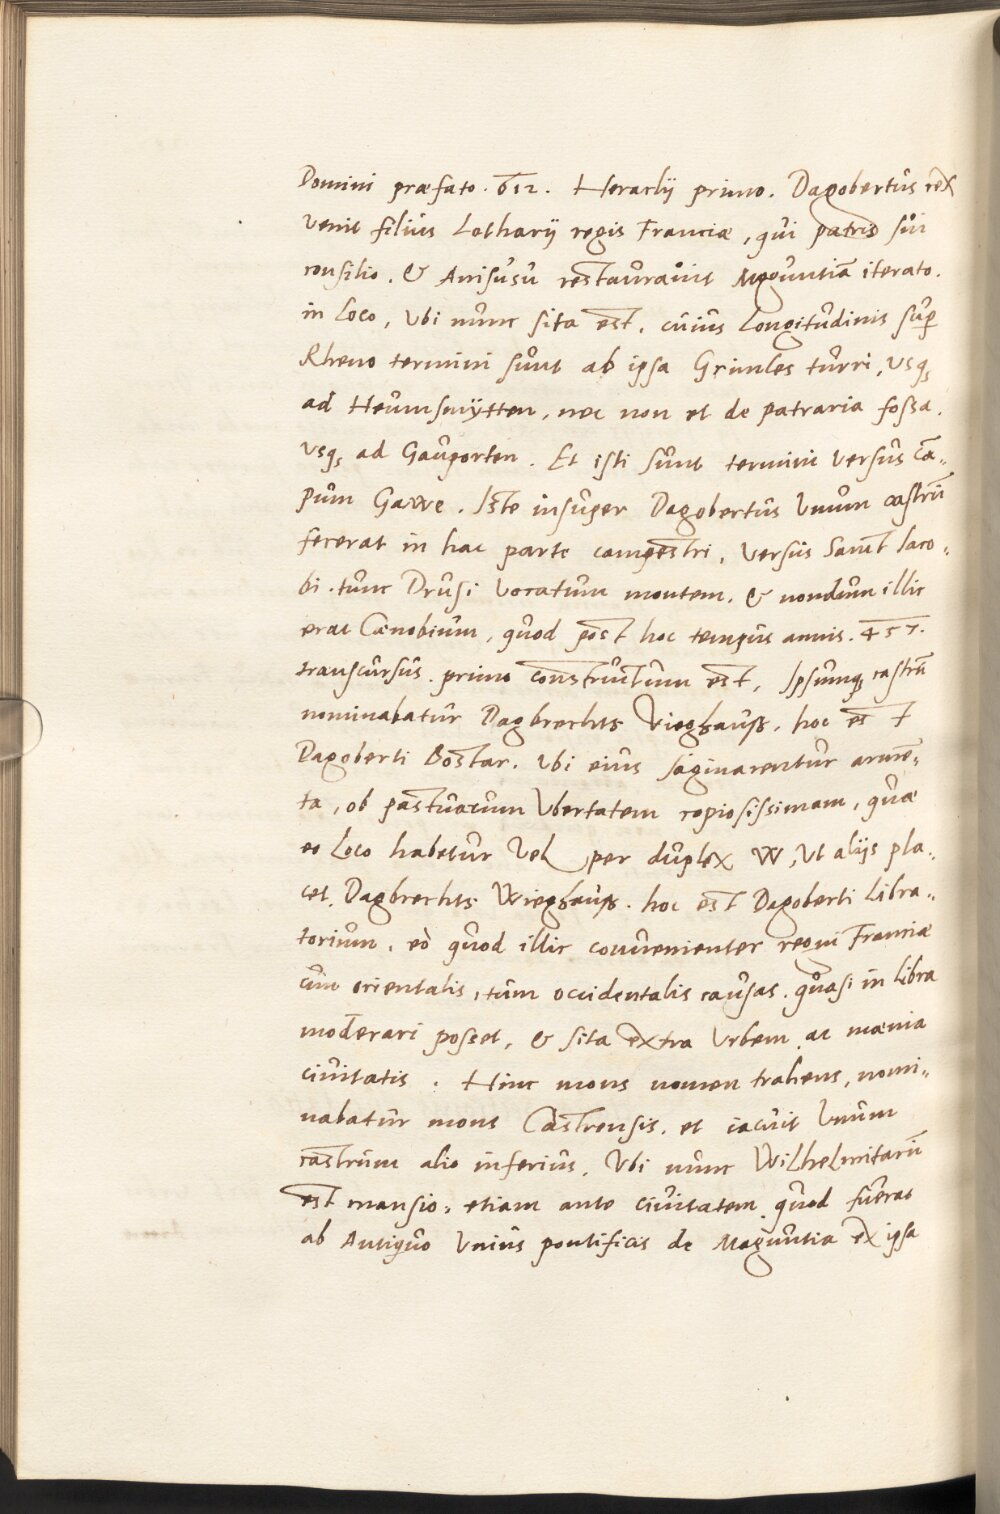 Domini præfato. 612. Heraclij primo. Dagobertus rex
venit filius Lotharij regis Franciæ, qui patris sui
consilio. & Auisusu restaurauit Mogũntiã iterato.
in Loco, Vbi nunc sita est. cuius Longitudinis sup
Rheno termini sunt ab ipsa Grimles turri, usq
ad Heumsmÿtten, nec non et de patraria fossa.
usq ad Gauporten. Et isti sunt termini versus Cã-
pum Gawe. Iste insuper Dagobertus Vnum castrũ
fecerat in hac parte campestri, versus Sanct Iaco-
bi. tunc Drusi vocatum montem. & nondum illic
erat Cœnobium, quod post hoc tempus annis. 457.
transcursus. primo constructum est. Ipsumq castrũ
nominabatur Dagbrechts Vieghauß. hoc est
Dagoberti Bostar. Vbi eius saginarentur armẽ-
ta, ob pastuarum Vbertatem copiosissimam, quæ
eo Loco habetur Vel per duplex W, Vt alijs pla-
cet. Dagbrechts Wieghauß. hoc est Dagoberti Libra-
torium. eò quod illic conuenienter regni Franciæ
cum orientalis, tum occidentalis causas. quasi in libra
moderari posset, & sita extra Vrbem ac mœnia
ciuitatis. Hinc mons nomen trahens, nomi-
nabatur mons Castrensis. et iacuit Vnum
castrum alio inferius. Vbi nunc Wilhelmitarũ
est mansio, etiam ante ciuitatem quod fuerat
ab Antiquo Vnius pontificis de Maguntia ex ipsa